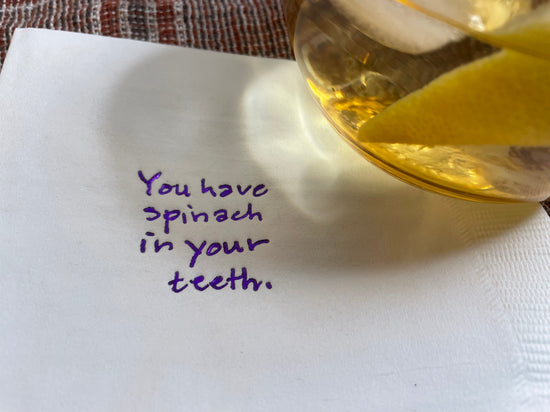 You have
spinach
in your
teeth.